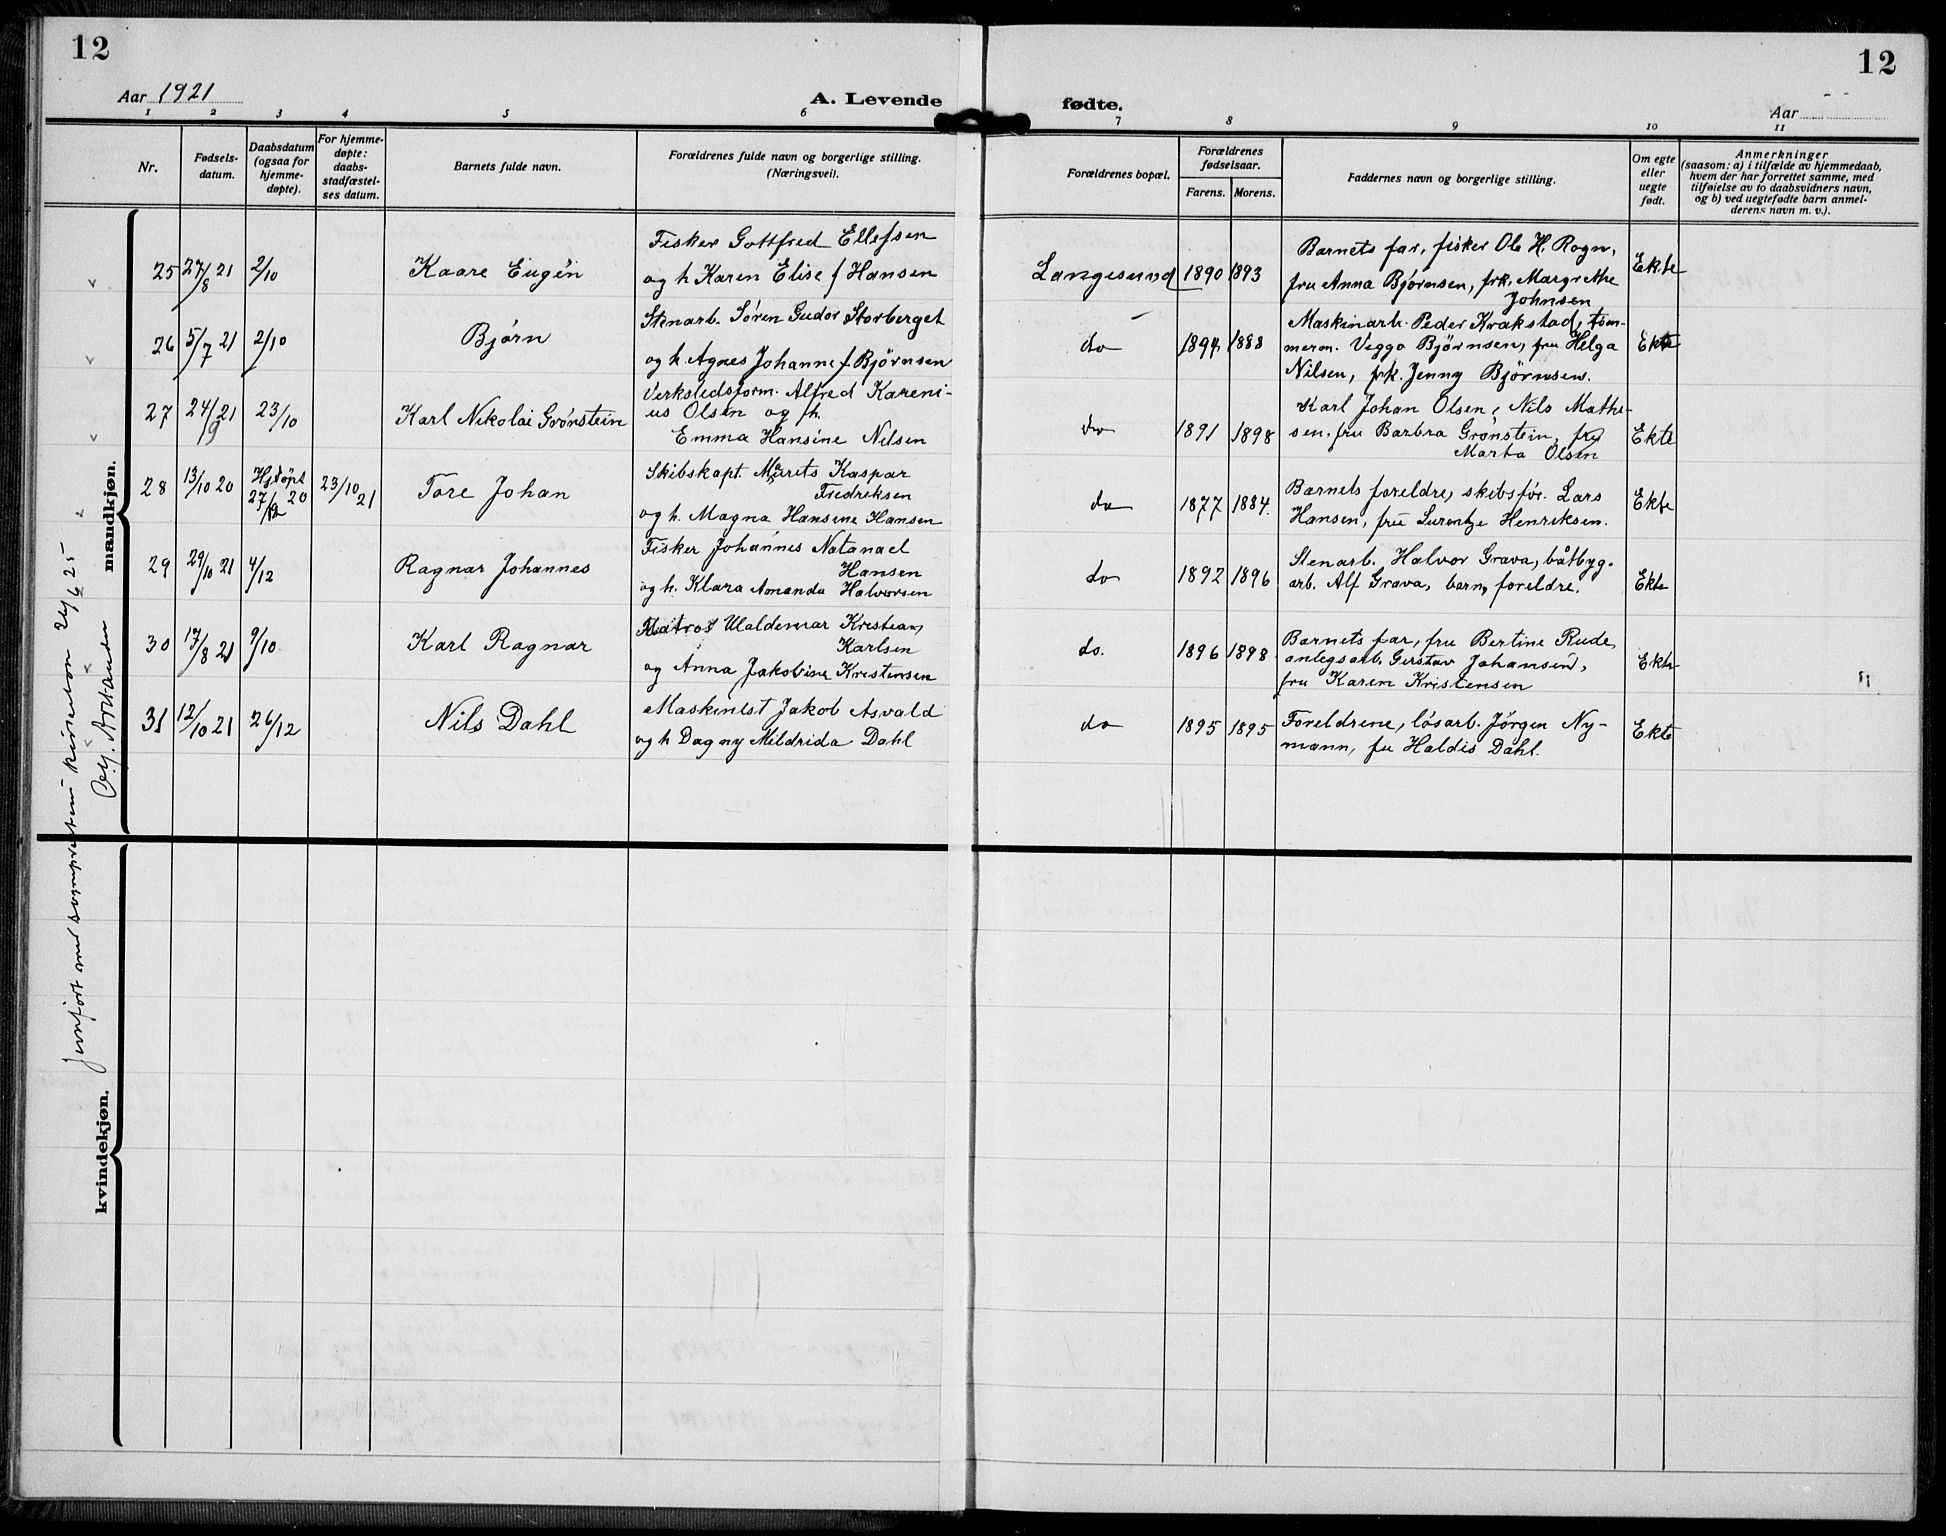 12
12
Aar 1921
A. Levende
fødte.
Aar
1 2 3 4 5 6 7 8 9 10 11
Nr.
Fødsels-
datum.
Daabsdatum
(ogsaa for
hjemme-
døpte).
For hjemme-
døpte:
daabs-
stadfæstel-
ses datum.
Barnets fulde navn.
Forældrenes fulde navn og borgerlige stilling.
(Næringsvei).
Forældrenes bopæl.
Forældrenes
fødselsaar.
Farens. Morens.
Faddernes navn og borgerlige stilling.
Om egte
eller
uegte
født.
Anmerkninger
(saasom: a) i tilfælde av hjemmedaab,
hvem der har forrettet samme, med
tilføielse av to daabsvidners navn,
og b) ved uegtefødte barn anmel-
derens navn m. v.).
mandkjøn.
25 27/8 21 2/10 Kaare Eugén
Fisker Gottfred Ellefsen
og h Karen Elise f Hansen
Langesund 1890 1893
Barnets far, fisker Ole H. Rogn,
fru Anna Bjørnsen, frk. Margrethe
Johnsen
Ekte
26 5/7 21 2/10 Bjørn
Stenarb. Søren Gudor Storberget
og h. Agnes Johanne f. Bjørnsen
do 1894 1888
Maskinarb. Peder Krakstad, tøm-
merm. Veggo Bjørnsen, fru Helga
Nilsen, frk. Jenny Bjørnsen.
Ekte
27 24/9 21 23/10 Karl Nikolai Grønstein
Verkstedsform. Alfred Kareni-
us Olsen og h.
Emma Hansine Nilsen
do 1891 1898
Karl Johan Olsen, Nils Mathi-
sen, fru Barbra Grønstein, fru
Marta Olsen
Ekte
28 13/10 20 Hj.døpt 27/12 20 23/10 21 Tore Johan
Skibskapt. Marets Kaspar
Fredriksen
og h. Magna Hansine Hansen
do 1877 1884.
Barnets foreldre, skibsfør. Lars
Hansen, fru Lurentze Henriksen.
Ekte
29 29/10 21 4/12 Ragnar Johannes
Fisker Johannes Natanael
Hansen
og h. Klara Amanda Halvorsen
do 1892 1896
Stenarb. Halvor Grava, båtbyg.
arb. Alf Grava, barn, foreldre.
Ekte
30 17/8 21 9/10 Karl Ragnar
Matros Waldemar Kristian
Karlsen
og Anna Jakobine Kristensen
do. 1896 1898
Barnets far, fru Bertine Rude,
anlegsarb. Gustav Johansen,
fru Karen Kristensen
Ekte
31 12/10 21 26/12 Nils Dahl
Maskinist Jakob Asvald
og h Dagny Mildrida Dahl
do 1895 1895
Foreldrene, løsarb. Jørgen Ny-
mann, fru Haldis Dahl.
Ekte
kvindekjøn.
Jemført med sogneprestens kirkebok 24/6 25